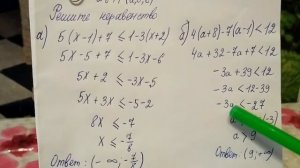 Решите неравенство
а) 5(x-1)+7 ≤ 1-3(x+2)
5x-5+7 ≤ 1-3x-6
5x+2 ≤ -3x-5
5x+3x ≤ -5-2
8x ≤ -7
x ≤ -7/8
Ответ: (-∞; -7/8]
б) 4(a+8)-7(a-1)<12
4a+32-7a+7<12
-3a+39<12
-3a<12-39
-3a<-27
(-3)
a>9
Ответ: (9;+∞)